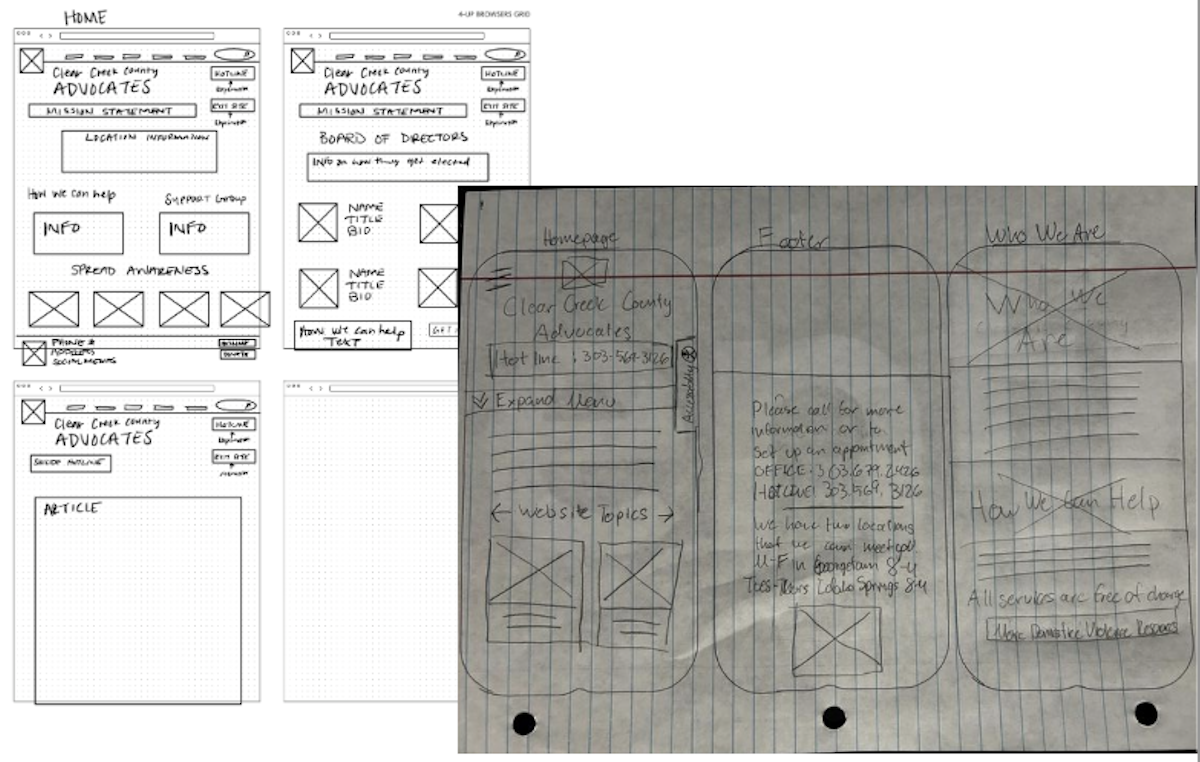 HOME
4-UP BROWSERS GRID
Clear Creek County
ADVOCATES
HOTLINE
EXIT SITE
MISSION STATEMENT
LOCATION INFORMATION
How we can help
Support Group
INFO
INFO
SPREAD AWARENESS
PHONE #
ADDRESS
SOCIAL MEDIA
DONATE
Clear Creek County
ADVOCATES
HOTLINE
EXIT SITE
MISSION STATEMENT
BOARD OF DIRECTORS
INFO on how they get elected
NAME
TITLE
BIO
NAME
TITLE
BIO
How we can help
TEXT
GET
Clear Creek County
ADVOCATES
HOTLINE
EXIT SITE
HOTLINE
ARTICLE
Homepage
Clear Creek County
Advocates
Hotline: 303-569-3126
Accessibility
Expand Menu
← Website Topics →
Footer
Please call for more
information or to
set up an appointment
OFFICE: 303.679.2426
Hotline 303.569.3126
We have two locations
that we can meet you
M-F in Georgetown 8-4
Tues-Thurs Idaho Springs 8-4
Who We Are
Who We
Are
How We Can Help
All servies are free of charge
More Domestice Violence